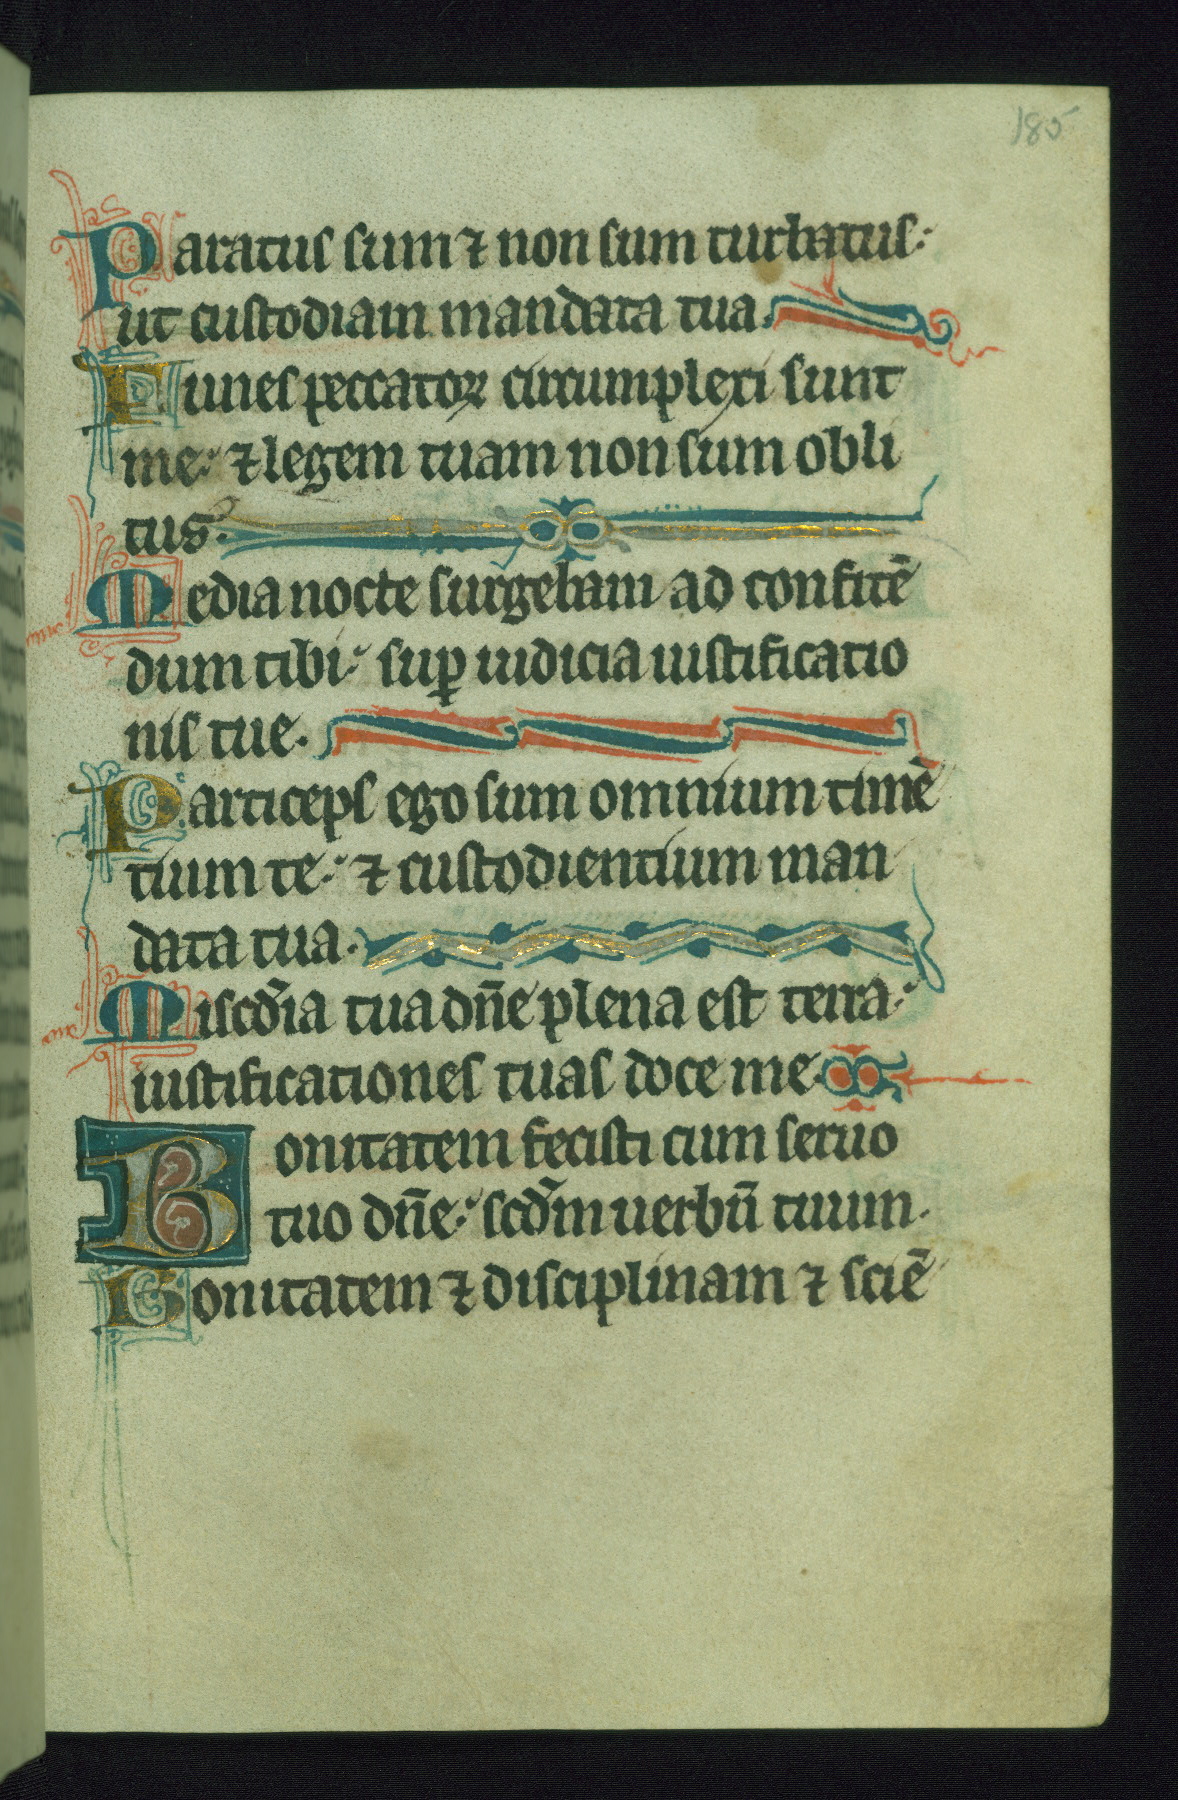 185
Paratus sum ⁊ non sum turbatus:
ut custodiam mandata tua.
Funes peccatoꝝ circumplexi sunt
me: ⁊ legem tuam non sum obli
tus.
Media nocte surgebam ad confitē
dum tibi: suꝑ iudicia iustificatio
nis tue.
Particeps ego sum omnium timē
tium te: ⁊ custodientium man
data tua.
Miscd̄ia tua dn̄e plena est terra:
iustificationes tuas doce me.
Bonitatem fecisti cum seruo
tuo dn̄e: scd̄m uerbū tuum.
Bonitatem ⁊ disciplinam ⁊ sciē